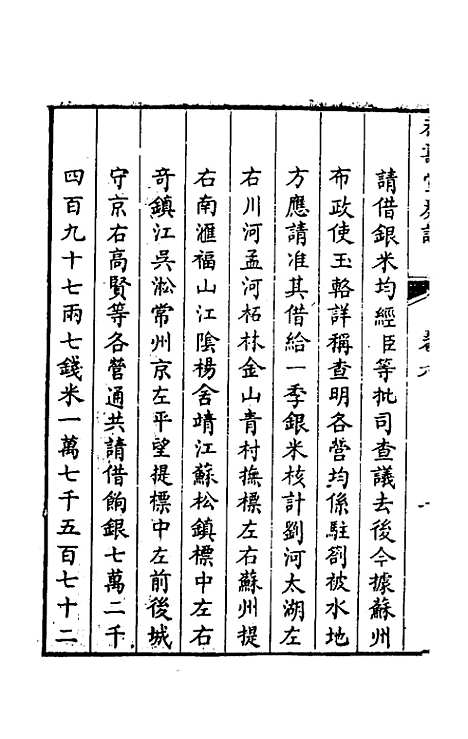 請借銀米均經臣等批司查議去後今據蘇州
布政使玉輅詳稱查明各營均係駐劄被水地
方應請准其借給一季銀米核計劉河太湖左
右川河孟河柘林金山青村撫標左右蘇州提
右南滙福山江陰楊舍靖江蘇松鎮標中左右
奇鎮江吳淞常州京左平望提標中左前後城
守京右高賢等各營通共請借餉銀七萬二千
四百九十七兩七錢米一萬七千五百七十二